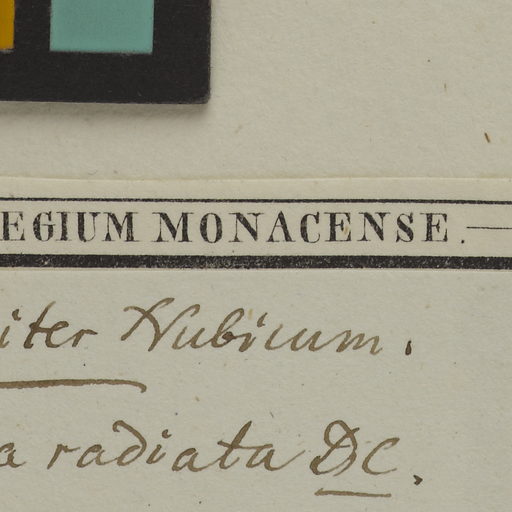 EGIUM MONACENSE.
iter Nubicum.
a radiata DC.